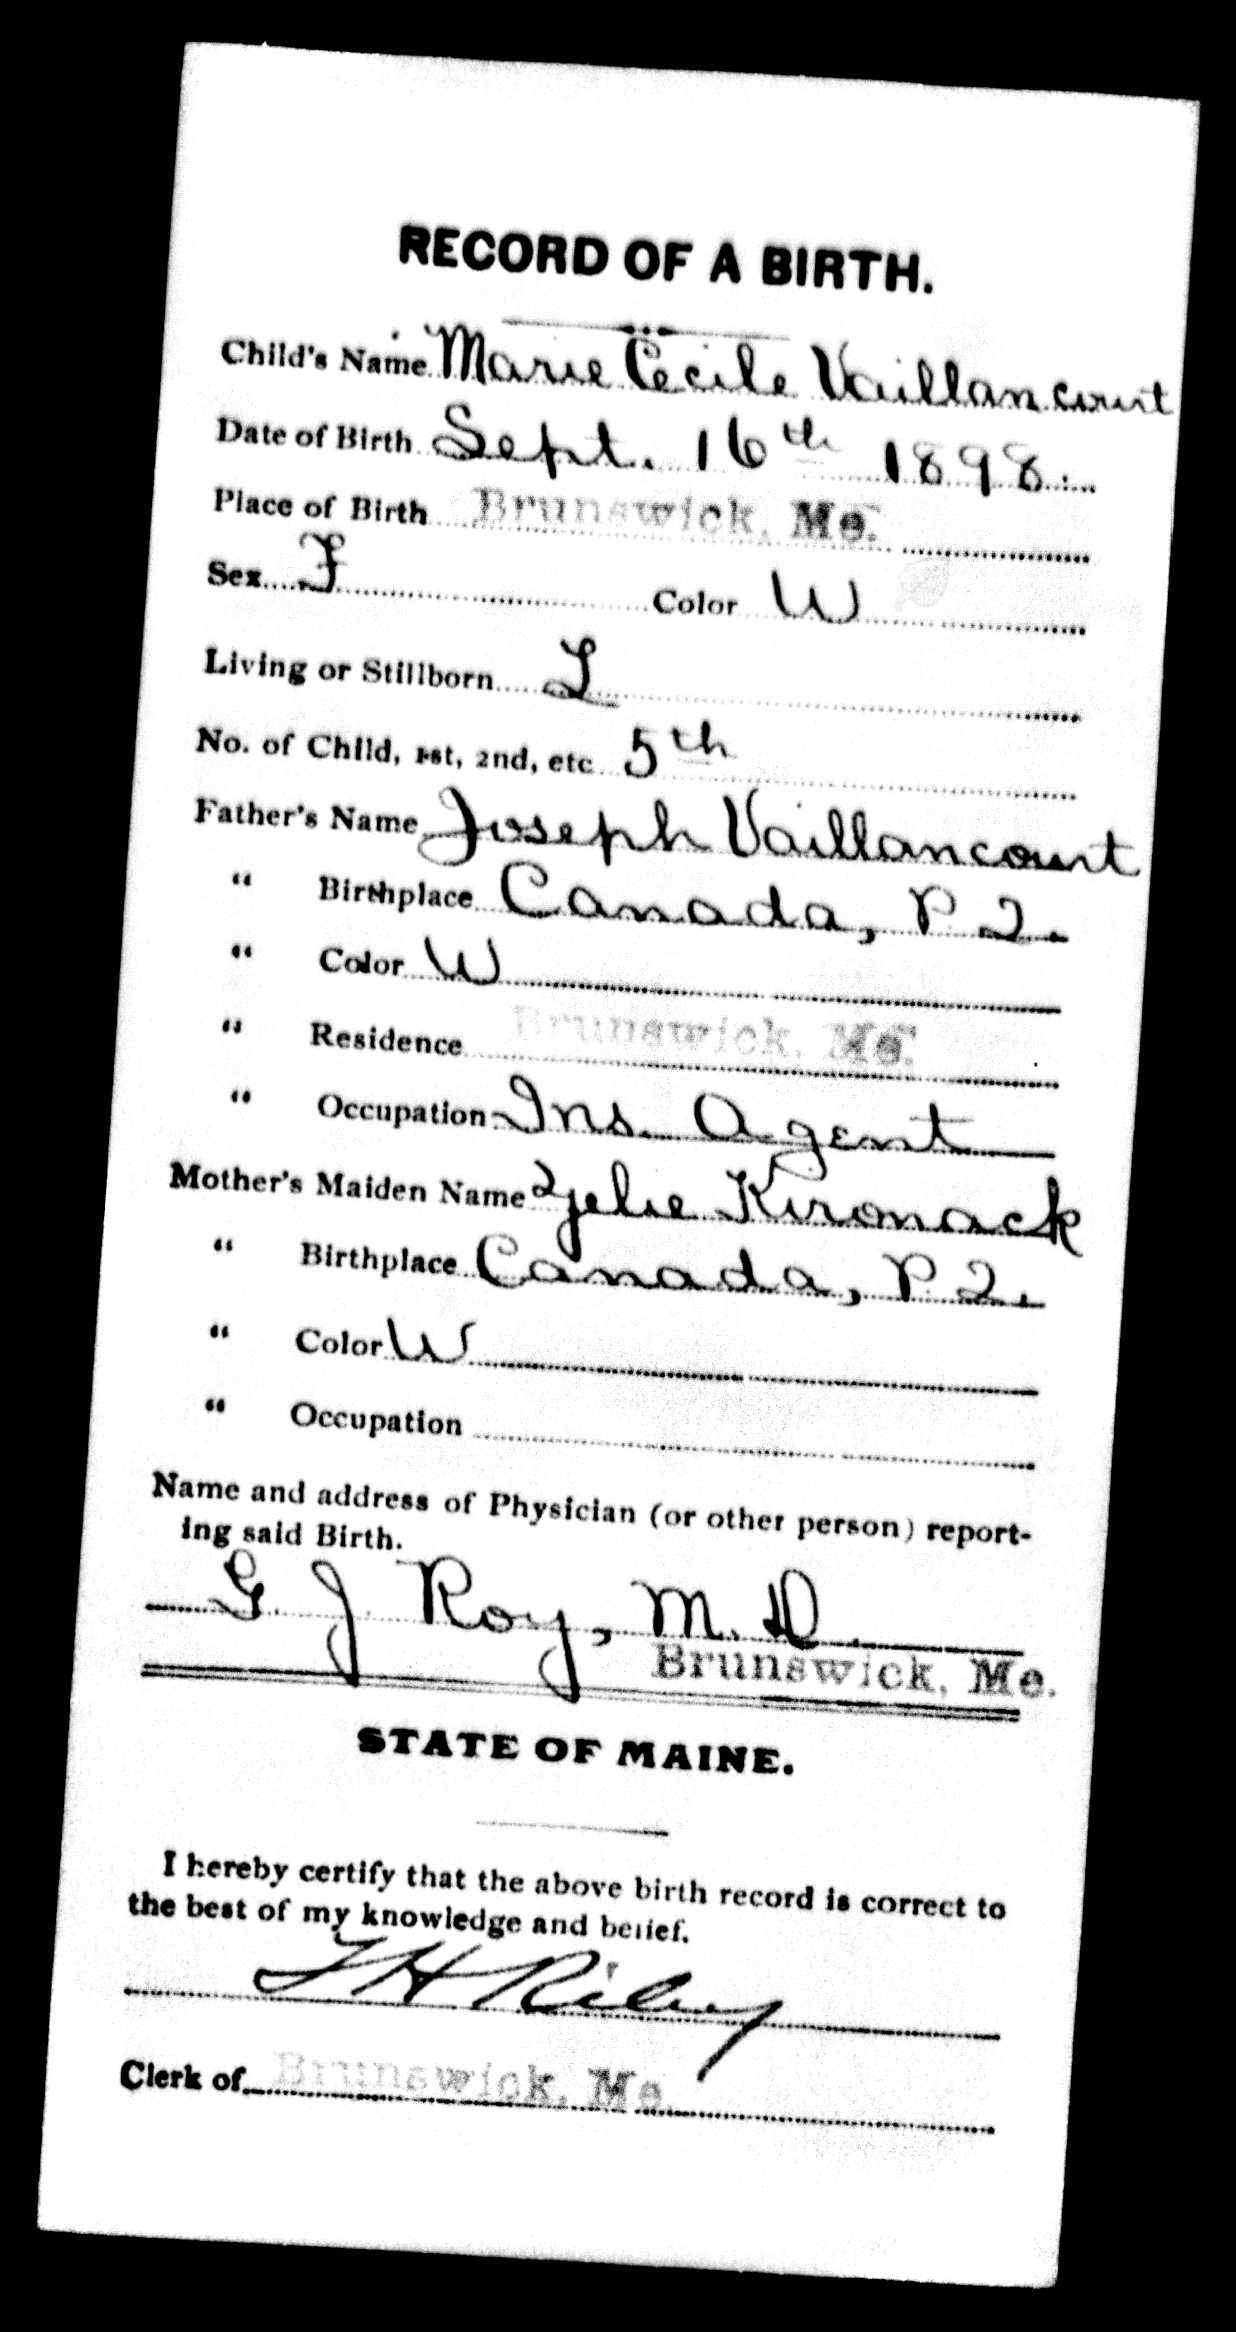 RECORD OF A BIRTH.
Child's Name Marie Cecile Vaillancourt
Date of Birth Sept. 16th 1898.
Place of Birth Brunswick, Me.
Sex F Color W
Living or Stillborn L
No. of Child, 1st, 2nd, etc 5th
Father's Name Joseph Vaillancourt
" Birthplace Canada, P. Q.
" Color W
" Residence Brunswick, Me.
" Occupation Ins. Agent
Mother's Maiden Name Zelie Kironack
" Birthplace Canada, P. Q.
" Color W
" Occupation
Name and address of Physician (or other person) report-
ing said Birth.
G. J. Roy, M. D.
Brunswick, Me.
STATE OF MAINE.
I hereby certify that the above birth record is correct to
the best of my knowledge and belief.
T H Riley
Clerk of Brunswick, Me.